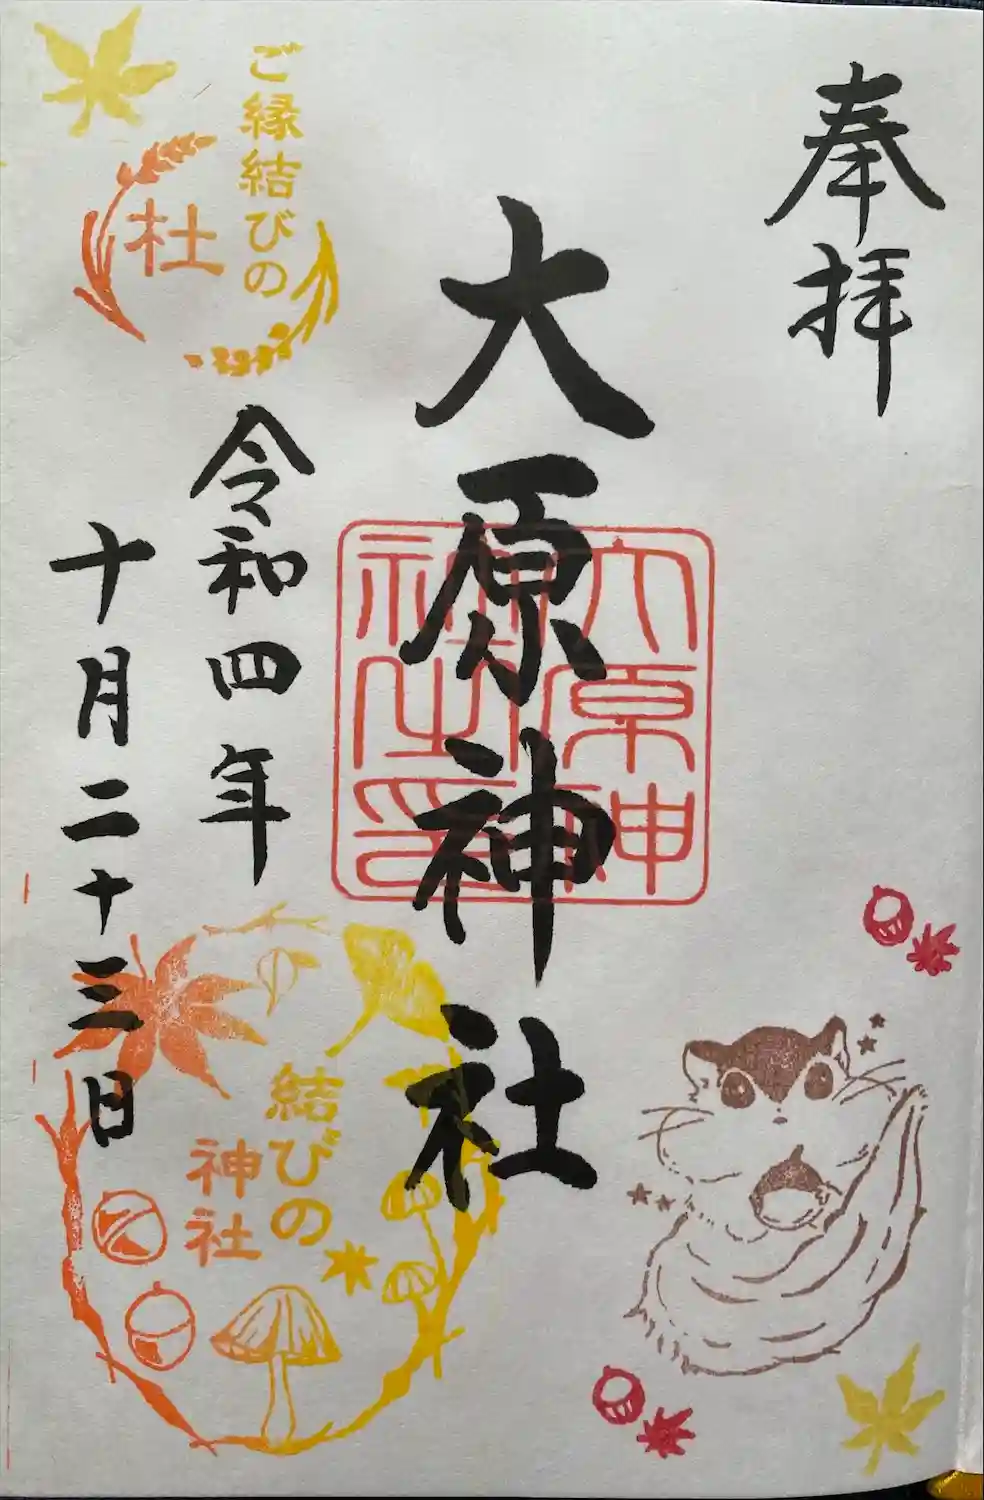 奉拝
大原神社
大原神
社之印
令和四年
十月二十三日
ご縁結びの
杜
結びの
神社